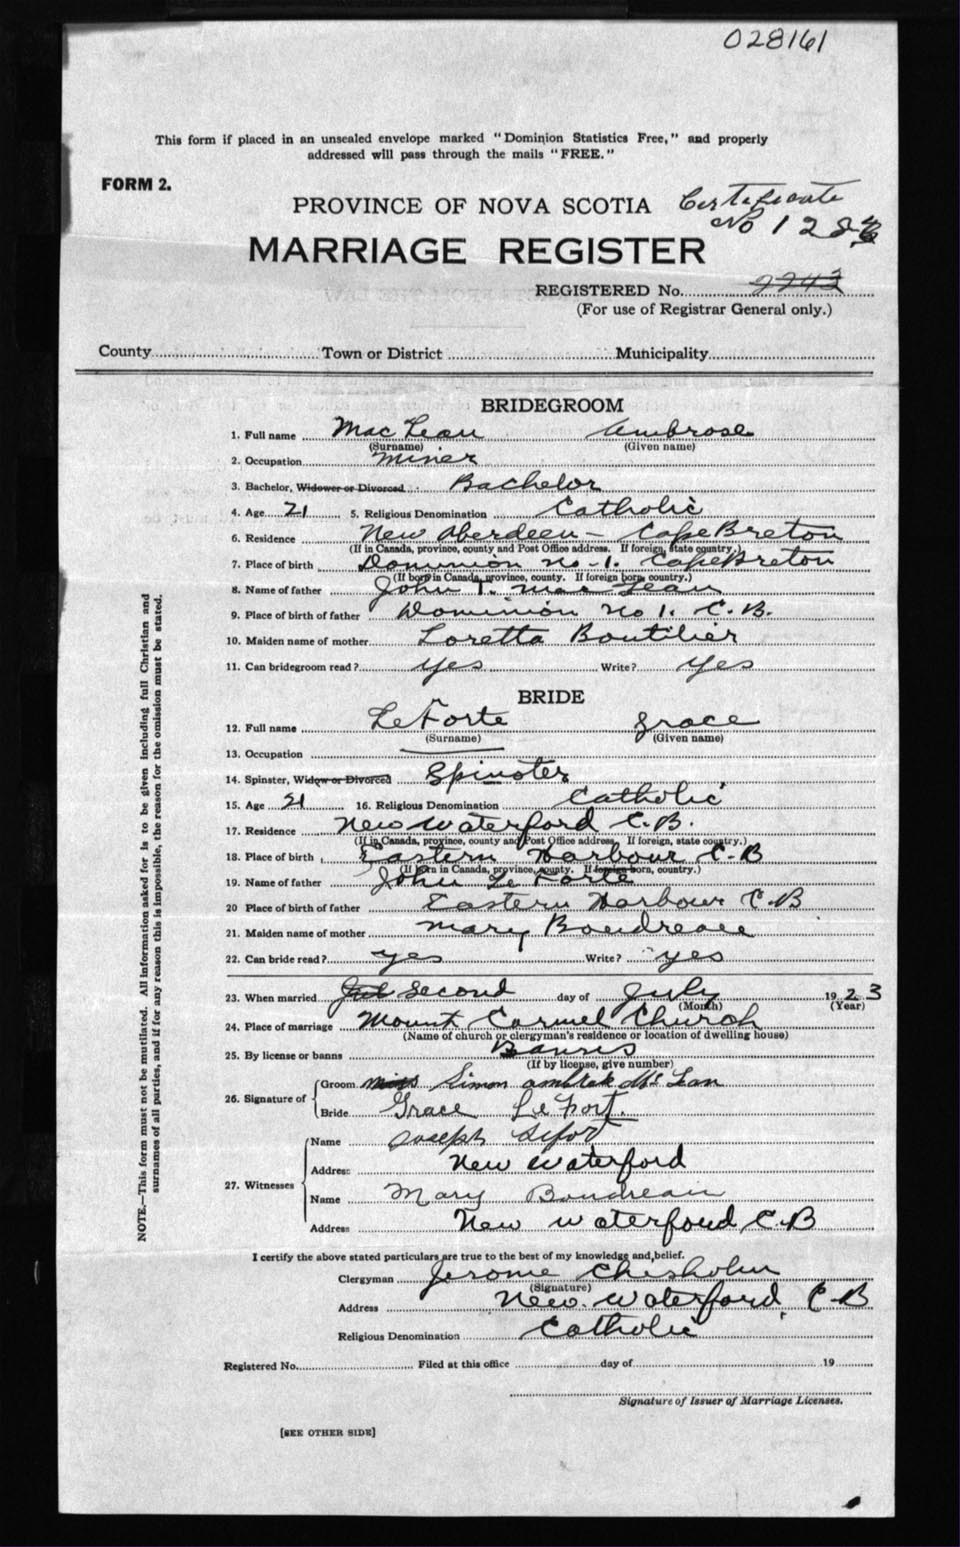 028161
This form if placed in an unsealed envelope marked "Dominion Statistics Free," and properly
addressed will pass through the mails "FREE."
FORM 2.
PROVINCE OF NOVA SCOTIA Certificate
No 128
MARRIAGE REGISTER
REGISTERED No. 2243
(For use of Registrar General only.)
County Town or District Municipality
BRIDEGROOM
1. Full name Mac Lean Ambrose
(Surname) (Given name)
2. Occupation Miner
3. Bachelor, Widower or Divorced Bachelor
4. Age 21 5. Religious Denomination Catholic
6. Residence New Aberdeen - Cape Breton
(If in Canada, province, county and Post Office address. If foreign, state country.)
7. Place of birth Dominion No-1. Cape Breton
(If born in Canada, province, county. If foreign born, country.)
8. Name of father John T. Mac Lean
9. Place of birth of father Dominion No 1. C.B.
10. Maiden name of mother Loretta Boutilier
11. Can bridegroom read? yes Write? yes
BRIDE
12. Full name LeForte Grace
(Surname) (Given name)
13. Occupation
14. Spinster, Widow or Divorced Spinster
15. Age 21 16. Religious Denomination Catholic
17. Residence New Waterford C.B.
(If in Canada, province, county and Post Office address. If foreign, state country.)
18. Place of birth Eastern Harbour C.B
(If born in Canada, province, county. If foreign born, country.)
19. Name of father John Le Forte
20 Place of birth of father Eastern Harbour C.B
21. Maiden name of mother Mary Boudreau
22. Can bride read? yes Write? yes
23. When married second day of July 1923
(Month) (Year)
24. Place of marriage Mount Carmel Church
(Name of church or clergyman's residence or location of dwelling house)
25. By license or banns Banns
(If by license, give number)
26. Signature of Groom Simon Mc Lean
Bride Grace LeFort.
27. Witnesses Name Joseph Lefort
Address New Waterford
Name Mary Boudreau
Address New Waterford C.B
I certify the above stated particulars are true to the best of my knowledge and belief.
Clergyman Jerome Chisholm
(Signature)
Address New. Waterford, C-B
Religious Denomination Catholic
Registered No. Filed at this office day of 19
Signature of Issuer of Marriage Licenses.
[SEE OTHER SIDE]
NOTE.—This form must not be mutilated. All information asked for is to be given including full Christian and
surnames of all parties, and if for any reason this is impossible, the reason for the omission must be stated.